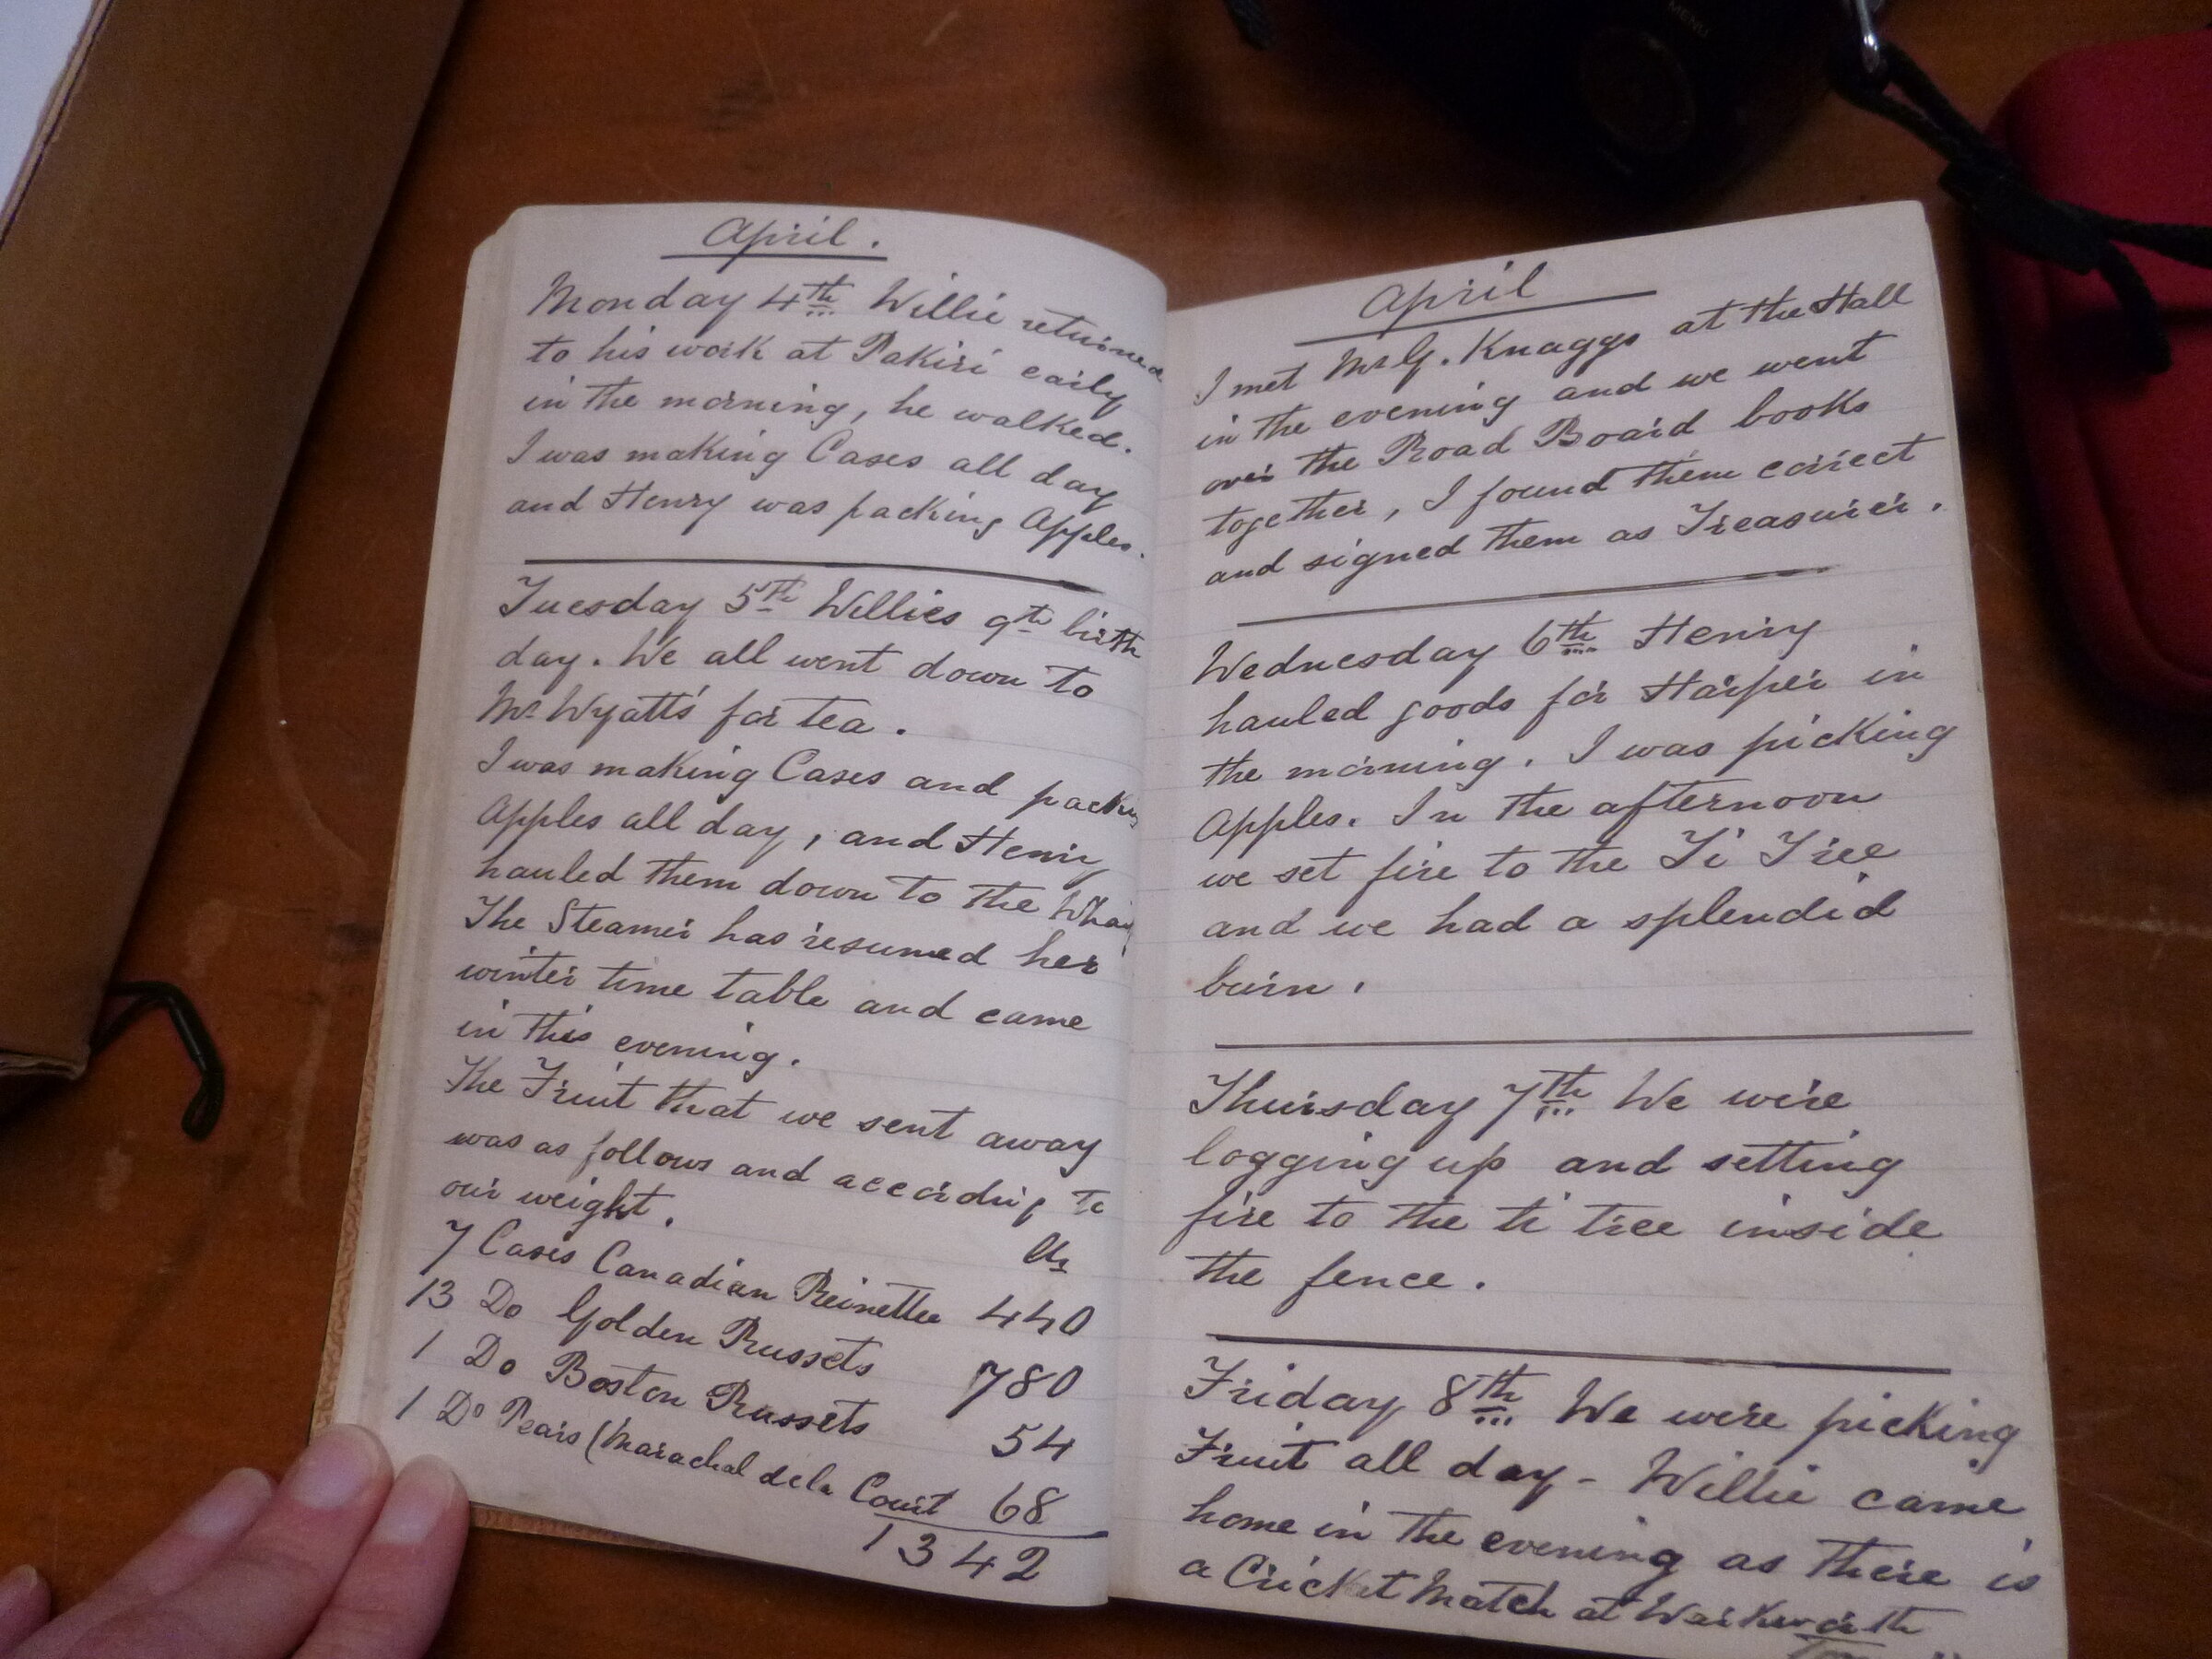 April.
Monday 4th Willie returned
to his work at Pakiri early
in the morning, he walked.
I was making Cases all day
and Henry was packing Apples.
Tuesday 5th Willies 9th birth
day. We all went down to
Mr Wyatt's for tea.
I was making Cases and packing
Apples all day, and Henry
hauled them down to the Wharf
The Steamer has resumed her
winter time table and came
in this evening.
The Fruit that we sent away
was as follows and according to
our weight.
lbs
7 Cases Canadian Reinettee 440
13 Do Golden Russets 780
1 Do Boston Russets 54
1 Do Pears (Marachal dela Court 68
1342
April
I met Mr G. Knaggs at the Hall
in the evening and we went
over the Road Board books
together, I found them correct
and signed them as Treasurer.
Wednesday 6th Henry
hauled goods for Harper in
the morning. I was picking
Apples. In the afternoon
we set fire to the Ti Tree
and we had a splendid
burn.
Thursday 7th We were
logging up and setting
fire to the ti tree inside
the fence.
Friday 8th We were picking
Fruit all day - Willie came
home in the evening as there is
a Cricket Match at Warkworth
MENU